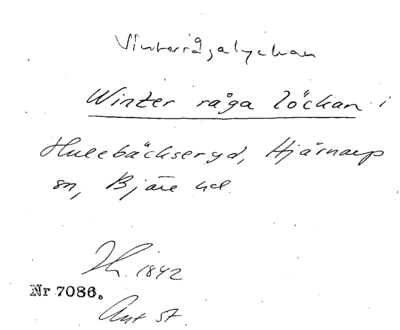 Vinterrågalyckan
Winter råga löckan i
Hulebäckseryd, Hjärnarp
sn, Bjäre hd.
1842
Nr 7086.
Ant st.